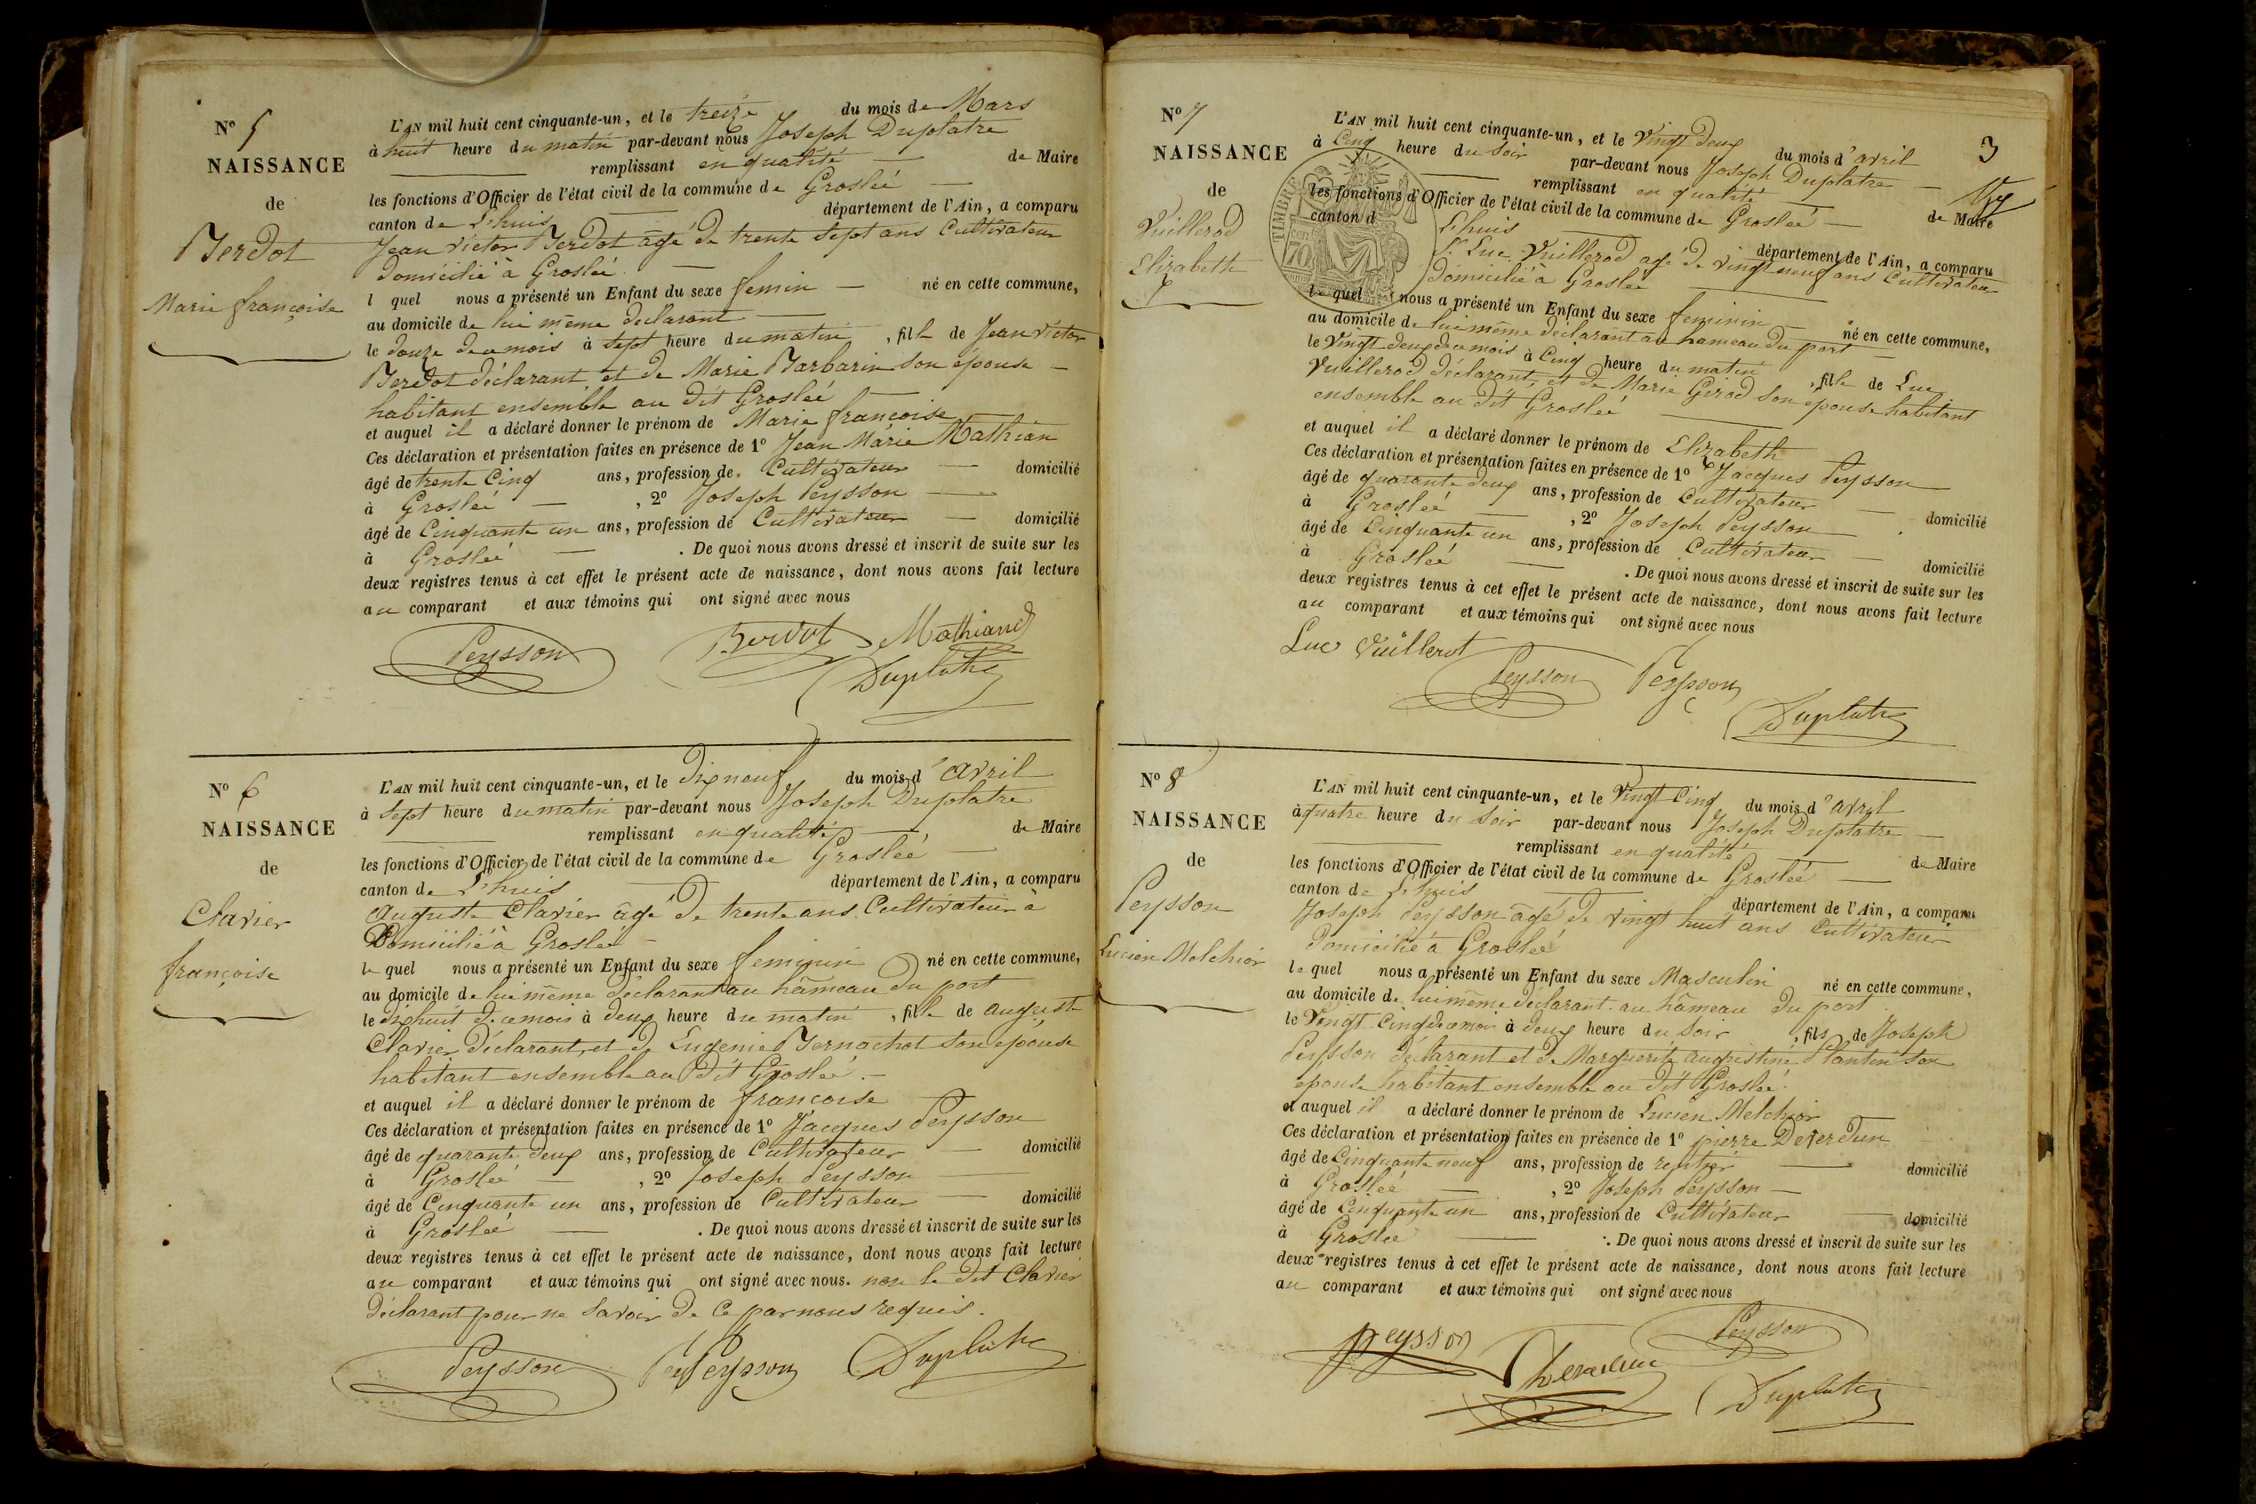 N° 5
NAISSANCE
de
Berdot
Marie françoise
L'AN mil huit cent cinquante-un, et le treize du mois de Mars
à huit heure du matin par-devant nous Joseph Duplatre
remplissant en qualité de Maire
les fonctions d'Officier de l'état civil de la commune de Groslée
canton de L'huis département de l'Ain, a comparu
Jean Victor Berdot âgé de trente sept ans Cultivateur
domicilié à Groslée
l quel nous a présenté un Enfant du sexe femin né en cette commune,
au domicile de lui même déclarant
le douze de ce mois à sept heure du matin, fille de Jean Victor
Berdot déclarant et de Marie Barbarin son épouse
habitant ensemble au dit Groslée
et auquel il a déclaré donner le prénom de Marie françoise
Ces déclaration et présentation faites en présence de 1° Jean Marie Mathian
âgé de trente Cinq ans, profession de Cultivateur domicilié
à Groslée, 2° Joseph Peysson
âgé de Cinquante un ans, profession de Cultivateur domicilié
à Groslée. De quoi nous avons dressé et inscrit de suite sur les
deux registres tenus à cet effet le présent acte de naissance, dont nous avons fait lecture
au comparant et aux témoins qui ont signé avec nous
Peysson Berdot Mathiand
Duplatre
N° 6
NAISSANCE
de
Clavier
françoise
L'AN mil huit cent cinquante-un, et le dix neuf du mois d'avril
à sept heure du matin par-devant nous Joseph Duplatre
remplissant en qualité de Maire
les fonctions d'Officier de l'état civil de la commune de Groslée
canton de L'huis département de l'Ain, a comparu
Auguste Clavier âgé de trente ans Cultivateur à
Domicilié à Groslée
le quel nous a présenté un Enfant du sexe feminin né en cette commune,
au domicile de lui même déclarant au hâmeau du port
le dix huit de ce mois à deux heure du matin, fille de auguste
Clavier déclarant, et de Eugenie Bernachot son épouse
habitant ensemble au dit Groslée.
et auquel il a déclaré donner le prénom de françoise
Ces déclaration et présentation faites en présence de 1° Jacques Peysson
âgé de quarante deux ans, profession de Cultivateur domicilié
à Groslée, 2° Joseph Peysson
âgé de Cinquante un ans, profession de Cultivateur domicilié
à Groslée. De quoi nous avons dressé et inscrit de suite sur les
deux registres tenus à cet effet le présent acte de naissance, dont nous avons fait lecture
au comparant et aux témoins qui ont signé avec nous. non le dit Clavier
déclarant pour ne savoir de ce par nous requis.
Peysson Peysson Duplatre
3
N° 7
NAISSANCE
de
Vuillerod
Elizabeth
TIMBRE
L'AN mil huit cent cinquante-un, et le Vingt deux du mois d'avril
à Cinq heure du soir par-devant nous Joseph Duplatre
remplissant en qualité de Maire
les fonctions d'Officier de l'état civil de la commune de Groslée
canton d L'huis département de l'Ain, a comparu
Luc Vuillerod agé de vingt neuf ans Cultivateur
Domicilié à Groslée
le quel nous a présenté un Enfant du sexe feminin né en cette commune,
au domicile de lui même déclarant au hameau du port
le Vingt deux de ce mois à Cinq heure du matin, fille de Luc
Vuillerod déclarant, et de Marie Girod son épouse habitant
ensemble au dit Groslée
et auquel il a déclaré donner le prénom de Elizabeth
Ces déclaration et présentation faites en présence de 1° Jacques Peysson
âgé de quarante deux ans, profession de Cultivateur domicilié
à Groslée, 2° Joseph Peysson
âgé de Cinquante un ans, profession de Cultivateur domicilié
à Groslée. De quoi nous avons dressé et inscrit de suite sur les
deux registres tenus à cet effet le présent acte de naissance, dont nous avons fait lecture
au comparant et aux témoins qui ont signé avec nous
Luc Vuillerot
Peysson Peysson
Duplatre
N° 8
NAISSANCE
de
Peysson
Lucien Melchior
L'AN mil huit cent cinquante-un, et le Vingt Cinq du mois d'avril
à quatre heure du soir par-devant nous Joseph Duplatre
remplissant en qualité de Maire
les fonctions d'Officier de l'état civil de la commune de Groslée
canton de L'huis département de l'Ain, a comparu
Joseph Peysson âgé de vingt huit ans Cultivateur
Domicilié à Groslée
le quel nous a présenté un Enfant du sexe Masculin né en cette commune,
au domicile de lui même déclarant au hâmeau du port
le Vingt Cinq de ce mois à deux heure du soir, fils de Joseph
Peysson déclarant et de Marguerite augustine Plantin son
epouse habitant ensemble au dit Groslée.
et auquel il a déclaré donner le prénom de Lucien Melchior
Ces déclaration et présentation faites en présence de 1° pierre Deverdun
âgé de Cinquante neuf ans, profession de rentier domicilié
à Groslée, 2° Joseph Peysson
âgé de Cinquante un ans, profession de Cultivateur domicilié
à Groslée. De quoi nous avons dressé et inscrit de suite sur les
deux registres tenus à cet effet le présent acte de naissance, dont nous avons fait lecture
au comparant et aux témoins qui ont signé avec nous
Peysson Peysson
Duplatre